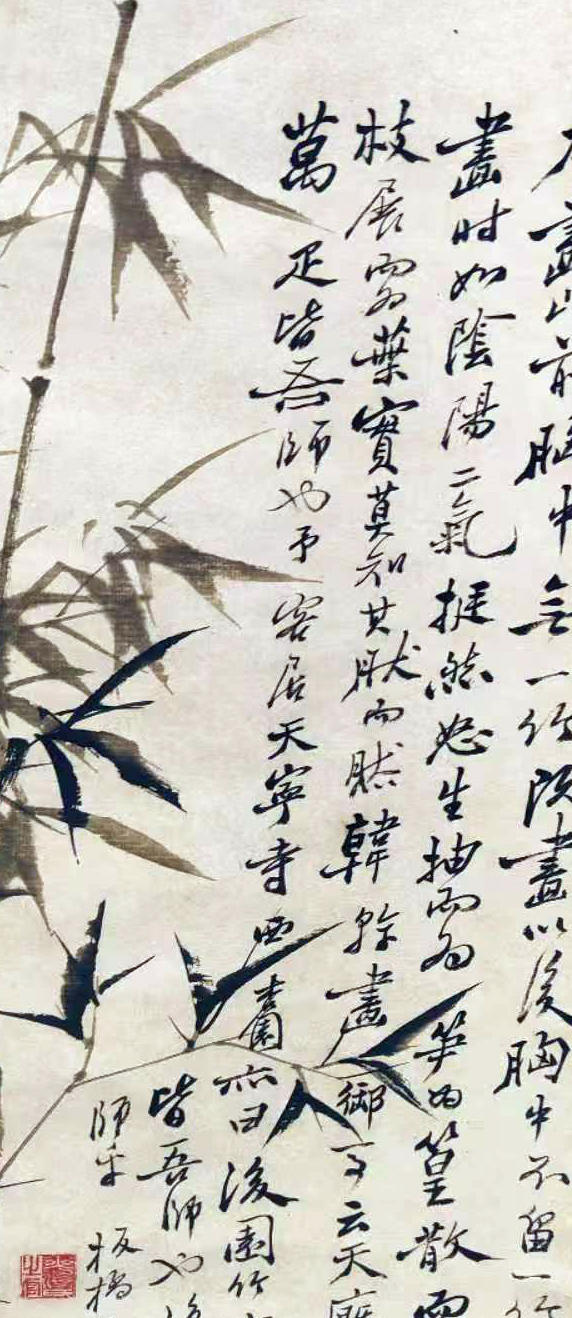 畫以前胸中無一竹既畫以後胸中不留一竹
畫時如陰陽二氣挺然怒生抽而為笋為篁散而
枝展而為葉實莫知其肰而然韓幹畫御馬云天廄
萬疋皆吾師也予客居天寧寺西杏園亦曰後園竹
皆吾師也後
師乎 板橋